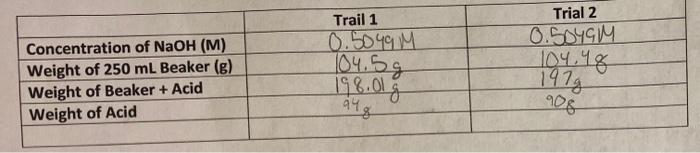 Trail 1 Trial 2
Concentration of NaOH (M) 0.5049 M 0.5049M
Weight of 250 mL Beaker (g) 104.5 g 104.48
Weight of Beaker + Acid 198.01 g 197g
Weight of Acid 94g 90g